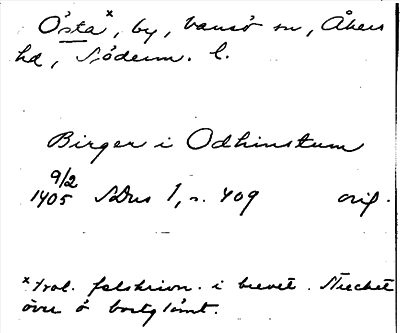 Östa x, by, Vansö sn, Åkers
hd, Söderm. l.
Birger i Odhinstum
9/2
1405 SDns 1, s. 409 orig.
x trol. felskrivn. i brevet. Strecket
över ö bortglömt.